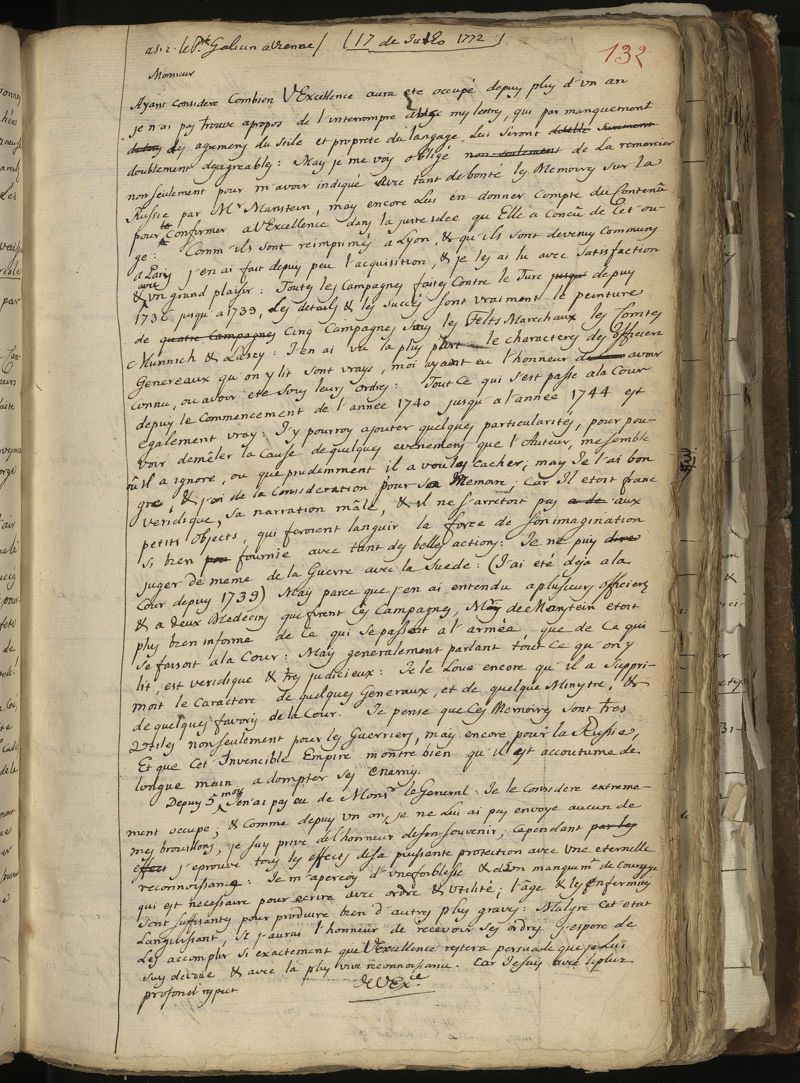 a S. E. le Pce Galicin a Vienne / (17 de Julio 1772)
132
Monsieur
Ayant Considere Combien VExcellence aura ete occupé depuy pluy d'un an
je n'ai pay trouve apropos de l'interrompre avec my lettrez, qui par manquement
dez agremeny du stile et proprete du langage, Lui seront
doublement desagreables: May je me voy obligé non seulement de la remercier
non seulement pour m'avoir indiqué avec tant de bonté ley Memoirez sur la
Russie par Mr Manstein, may encore Lui en donner Compte du Contenu
pour Confirmer a VExcellence dans la juste idee que Elle a Concû de Cet ou-
ge: Comm'ils sont reimpriméz a Lyon, & qu'ils sont devenuz Communy
a Pariz j'en ai fait depuy peu l'acquisition, & je ley ai lu avec satisfaction
& avec un grand plaisir: Toutez ley Campagnez faitez Contre le Turc jusqu depuy
1736 jusqu'a 1739, Ley detailz & ley succez sont vraiment le peinture
de quatre Campagnes Cinq Campagnez souz ley Felts Marechaux ley Comtez
Munnich & Lascy: J'en ai vu la pluy part le characterez dez officierz
Genereaux qu'on y lit sont vrayz, moi ayant eu l'honneur d avoir
connu, ou avoir eté souz leurz ordrez: Tout Ce qui s'est passé a la Cour
depuy le Commencement de l'année 1740 jusqu'a l'année 1744 est
egalement vray: J'y pourroy ajouter quelquez particularités, pour pou-
voir demêler la Cause de quelquez evenemenz que l'Auteur, me semble
oû il a ignoré, ou que prudemment il a voulu cacher; may Je l'ai bon
gré, & j'ai de la Consideration pour sa Memoire; Car Il etoit franc
veridique, sa narration mâle, & il ne s'arretoit pay a de aux
petits objects, qui feroient languir la force de son imagination
si bien fournie avec tant dez bellez actionz: Je ne puy dire
juger de meme de la Guerre avec la Suede: (J'ai eté deja a la
Cour depuy 1739) May parce que j'en ai entendu a plusieurz officierz
& a deux Medecinz qui firent Cez Campagnez, Mr de Manstein etoit
pluy bien informé de Ce qui se passoit a l'armée, que de Ce qui
se faisoit a la Cour: May generalement parlant tout Ce qu'on y
lit, est veridique & trez judicieux: Je le Loue encore qu'il a suppri-
moit le Caractere de quelquez Generaux, et de quelque Ministre, &
de quelquez favoriz de la Cour. Je pense que Cez Memoirez sont trez
utilez non seulement pour lez Guerrierz, may encore pour la Russie,
Et que Cet Invencible Empire montre bien qu'il est accoutumé de
longue main a dompter sez enemyz.
Depuy 5 moiz J'en ai pay eu de Monsr le General: Je le Considere extreme-
ment occupé; & Comme depuy un an, je ne Lui ai pay envoyé aucun de
mez brouillonz, je suy privé de l'honneur de son souvenir; Cependant par lez
effets j'eprouve touz lez effects de sa puissante protection avec une eternelle
reconnoissance: Je m'aperçoy d'une foiblesse & d'un manquemt de Courage
qui est necessaire pour ecrire avec ordre & utilité; l'âge & lez enfermitez
sont suffisantez pour produire bien d'autrez pluz gravez: Malgre Cet etat
Languissant, si j'aurai l'honneur de recevoir sez ordrez j'espere de
Lez accomplir si exactement que VExcellence restera persuadé que je Lui
suy devoué & avec la pluz vive reconnoissance. Car Je suiz avec le pluz
profond respect
de VExce